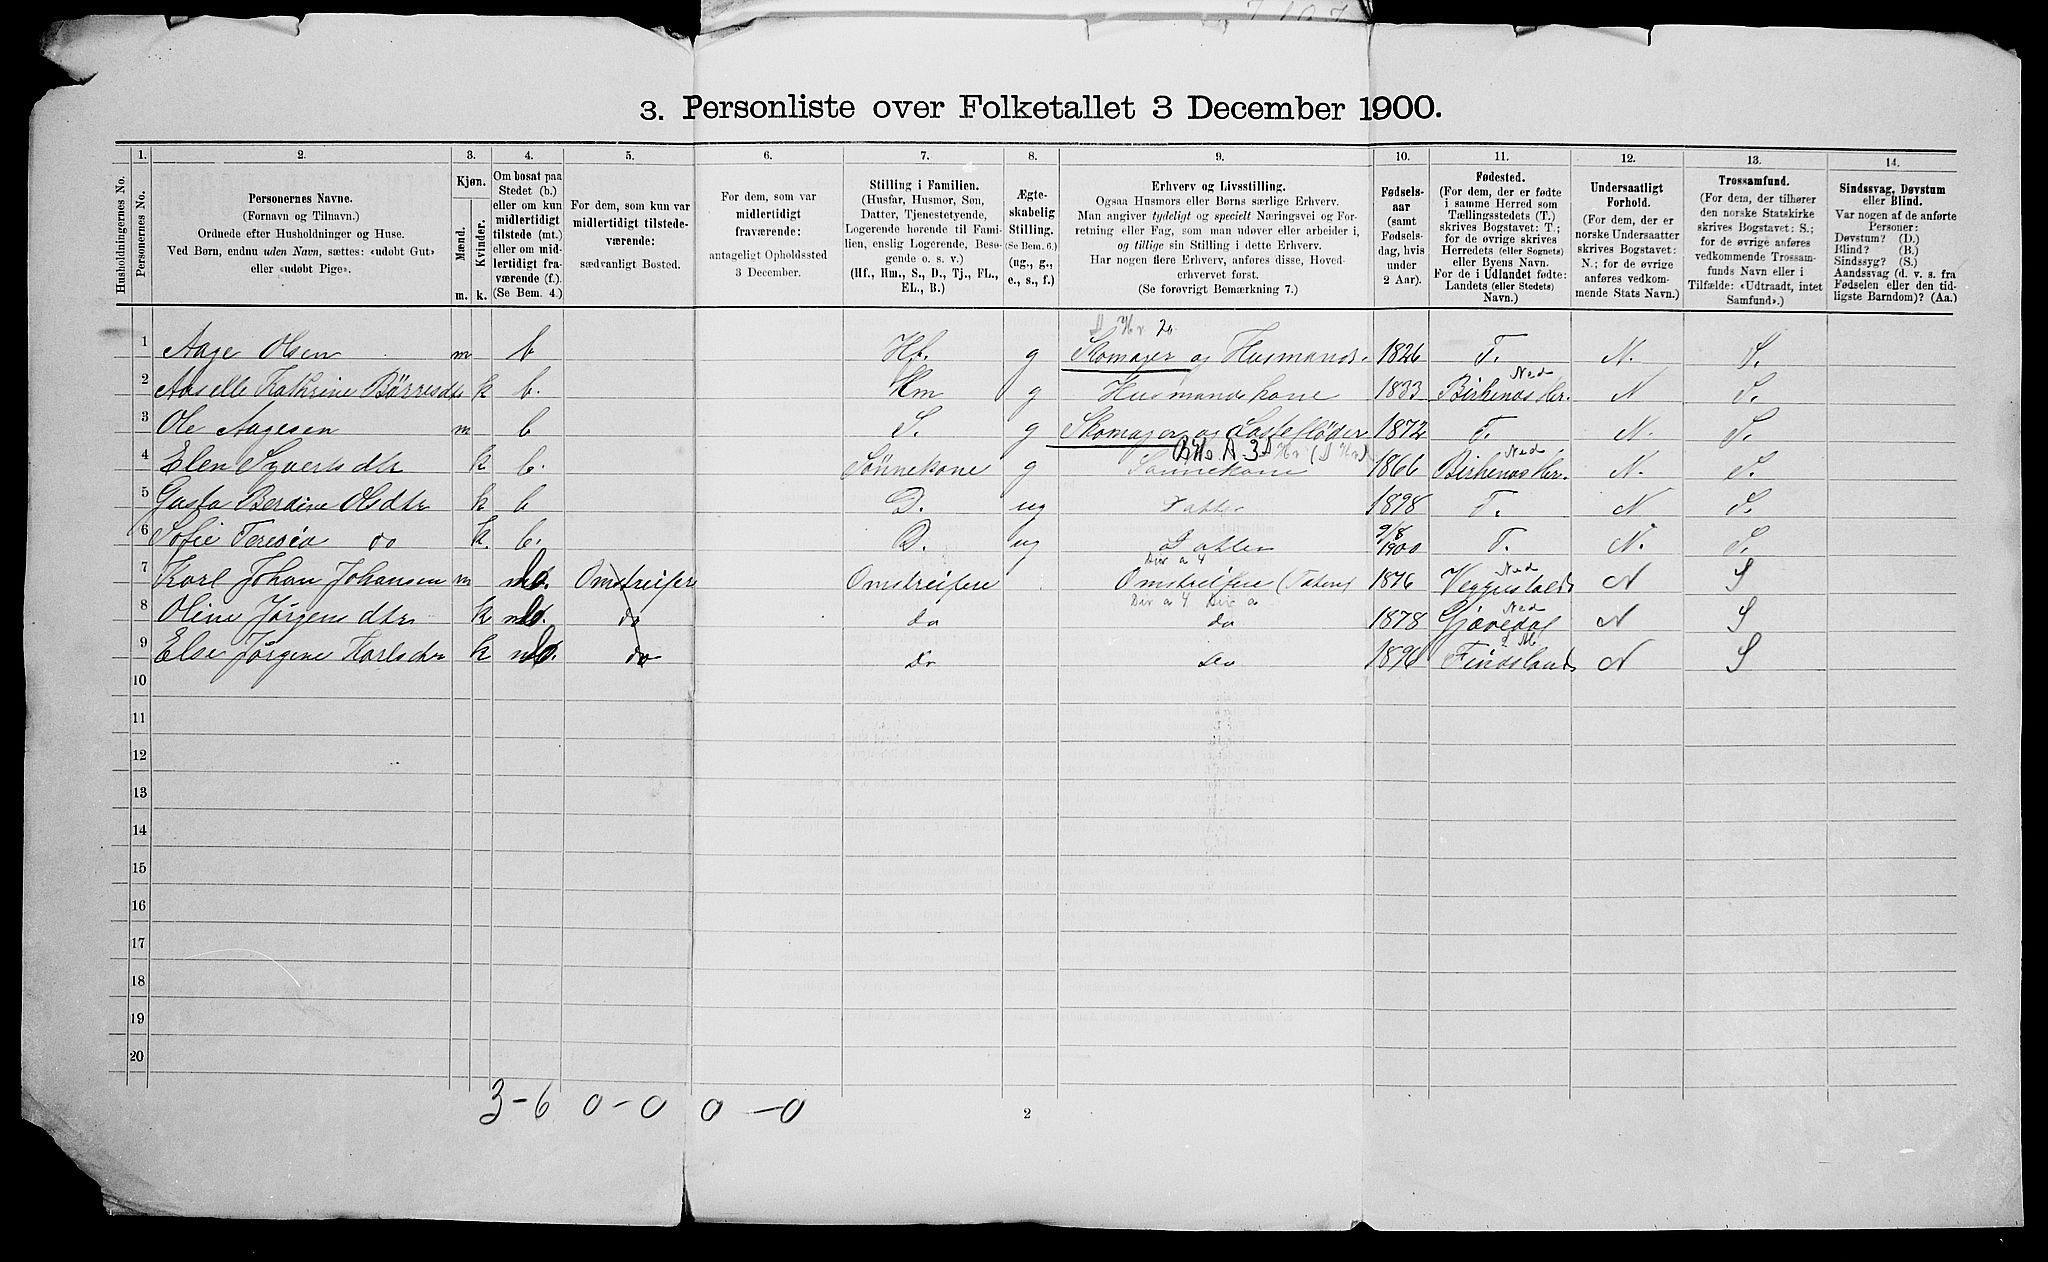 3. Personliste over Folketallet 3 December 1900.
Husholdningernes No.
1. Personernes No.
2. Personernes Navne. (Fornavn og Tilnavn.) Ordnede efter Husholdninger og Huse. Ved Børn, endnu uden Navn, sættes: «udøbt Gut» eller «udøbt Pige».
3. Kjøn. Mænd. m. Kvinder. k.
4. Om bosat paa Stedet (b.) eller om kun midlertidigt tilstede (mt.) eller om midlertidigt fraværende (f.) (Se Bem. 4.)
5. For dem, som kun var midlertidigt tilstedeværende: sædvanligt Bosted.
6. For dem, som var midlertidigt fraværende: antageligt Opholdssted 3 December.
7. Stilling i Familien. (Husfar, Husmor, Søn, Datter, Tjenestetyende, Logerende hørende til Familien, enslig Logerende, Besøgende o. s. v.) (Hf., Hm., S., D., Tj., FL., EL., B.)
8. Ægteskabelig Stilling. (Se Bem. 6.) (ug., g., e., s., f.)
9. Erhverv og Livsstilling. Ogsaa Husmors eller Børns særlige Erhverv. Man angiver tydeligt og specielt Næringsvei og Forretning eller Fag, som man udøver eller arbeider i, og tillige sin Stilling i dette Erhverv. Har nogen flere Erhverv, anføres disse, Hovederhvervet først. (Se forøvrigt Bemærkning 7.)
10. Fødselsaar (samt Fødselsdag, hvis under 2 Aar).
11. Fødested. (For dem, der er fødte i samme Herred som Tællingsstedets (T.) skrives Bogstavet: T.; for de øvrige skrives Herredets (eller Sognets) eller Byens Navn. For de i Udlandet fødte: Landets (eller Stedets) Navn.)
12. Undersaatligt Forhold. (For dem, der er norske Undersaatter skrives Bogstavet: N.; for de øvrige anføres vedkommende Stats Navn.)
13. Trossamfund. (For dem, der tilhører den norske Statskirke skrives Bogstavet: S.; for de øvrige anføres vedkommende Trossamfunds Navn eller i Tilfælde: «Udtraadt, intet Samfund».)
14. Sindssvag, Døvstum eller Blind. Var nogen af de anførte Personer: Døvstum? (D.) Blind? (B.) Sindssyg? (S.) Aandssvag (d. v. s. fra Fødselen eller den tidligste Barndom)? (Aa.)
1 Aage Olsen m b Hf. g Skomager og Husmand 1826 T. N. S.
2 Kathrine Børresdtr k b. Hm g Husmandskone 1833 Birkenes Her. Ned N S.
3 Ole Aagesen m b S. g Skomager og Lostefløder 1872 T. N. S.
4 Elen Syvertsdtr k b. Sønnekone g Sønnekone 1866 Birkenes Her. Ned N. S.
5 Gusta Berdine Olsdtr k b D. ug Datter 1898 T. N S.
6 Sofie Teresia do k. b. D. ug Datter 9/8 1900 T. N. S.
7 Karl Johan Johansen m Omstreifer Omstreifere Omstreifere (Tatere) 1876 Ned N S
8 Oline Jørgensdtr k do do do 1878 Gjøvedal Ned N S
9 Else Jørgine Karlsdtr k do do do 1896 Findsland N S
10
11
12
13
14
15
16
17
18
19
20
3-6 0-0 0-0
2